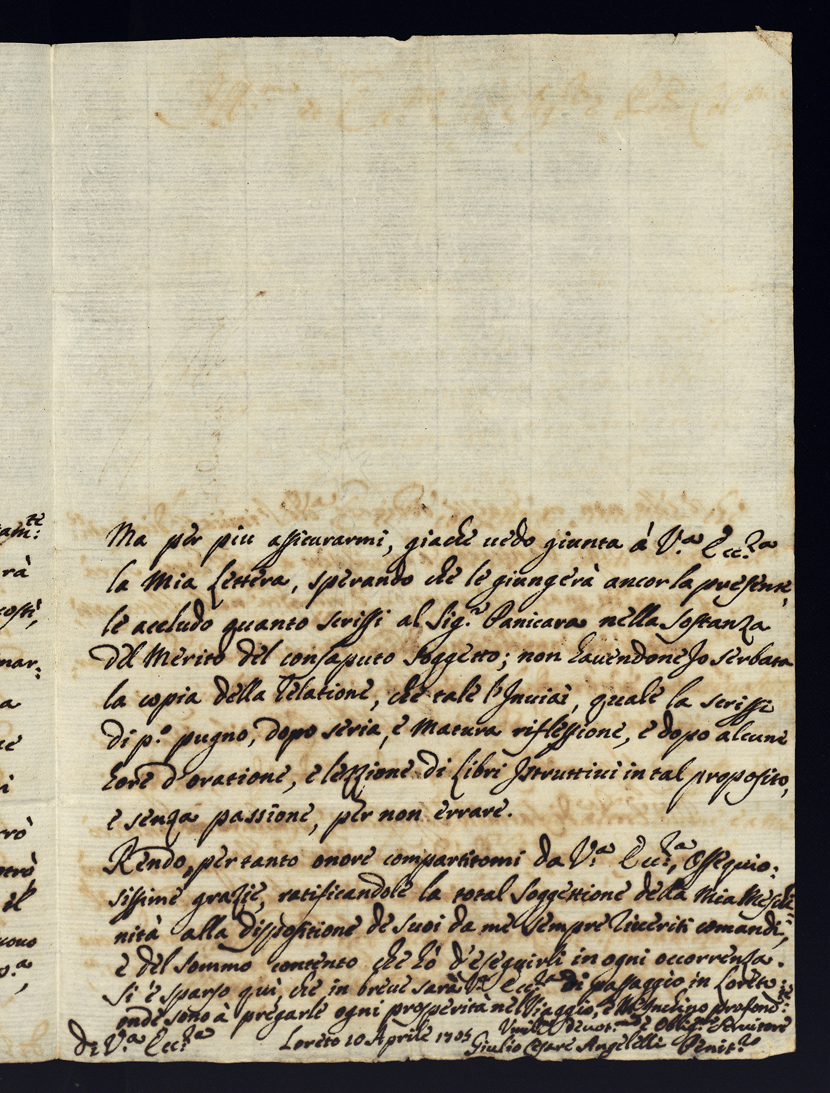 Ma per piu assicurarmi, giache uedo giunta à V.ª Ecc.za
la Mia Lettera, sperando che le giungerà ancor la presente,
le accludo quanto scrissi al Sig.re Panicara nella sostanza
del Merito del consaputo soggetto; non hauendone Jo serbata
la copia della Relatione, che tale l'Inuiai, quale la scrissi
di p.º pugno, dopo seria, e Matura riflessione, e dopo alcune
hore d'oratione, e lezzione di libri Jstruttiui in tal proposito,
e senza passione, per non errare.
Rendo, per tanto onore compartitomi da V.ª Ecc.ª, Ossequio:
sissime grazie, ratificandole la total soggettione della Mia Meschi:
nità alla dispositione de suoi da me sempre riueriti comandi,
e del sommo contento che hò d'eseguirli in ogni occorrenza.
Si è sparso quì, che in breue sarà V.ª Ecc.za di passaggio in Loreto;
onde sono à pregarle ogni prosperità nel Viaggio, e M'Inchino profond:te
di V.ª Ecc.ª
Loreto 10 Aprile 1705
Deuot.mo e Oblig.mo Seruitore
Giulio Cesare Angelelli Penit.re
am:te
rà
costì,
mar:
a
ì
rò
trò
el